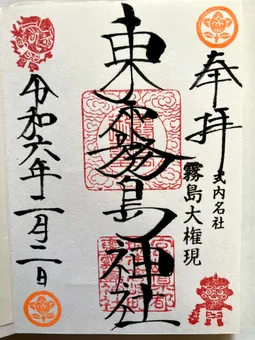 奉拝
式内名社
霧島大権現
東霧島神社
令和六年二月二日